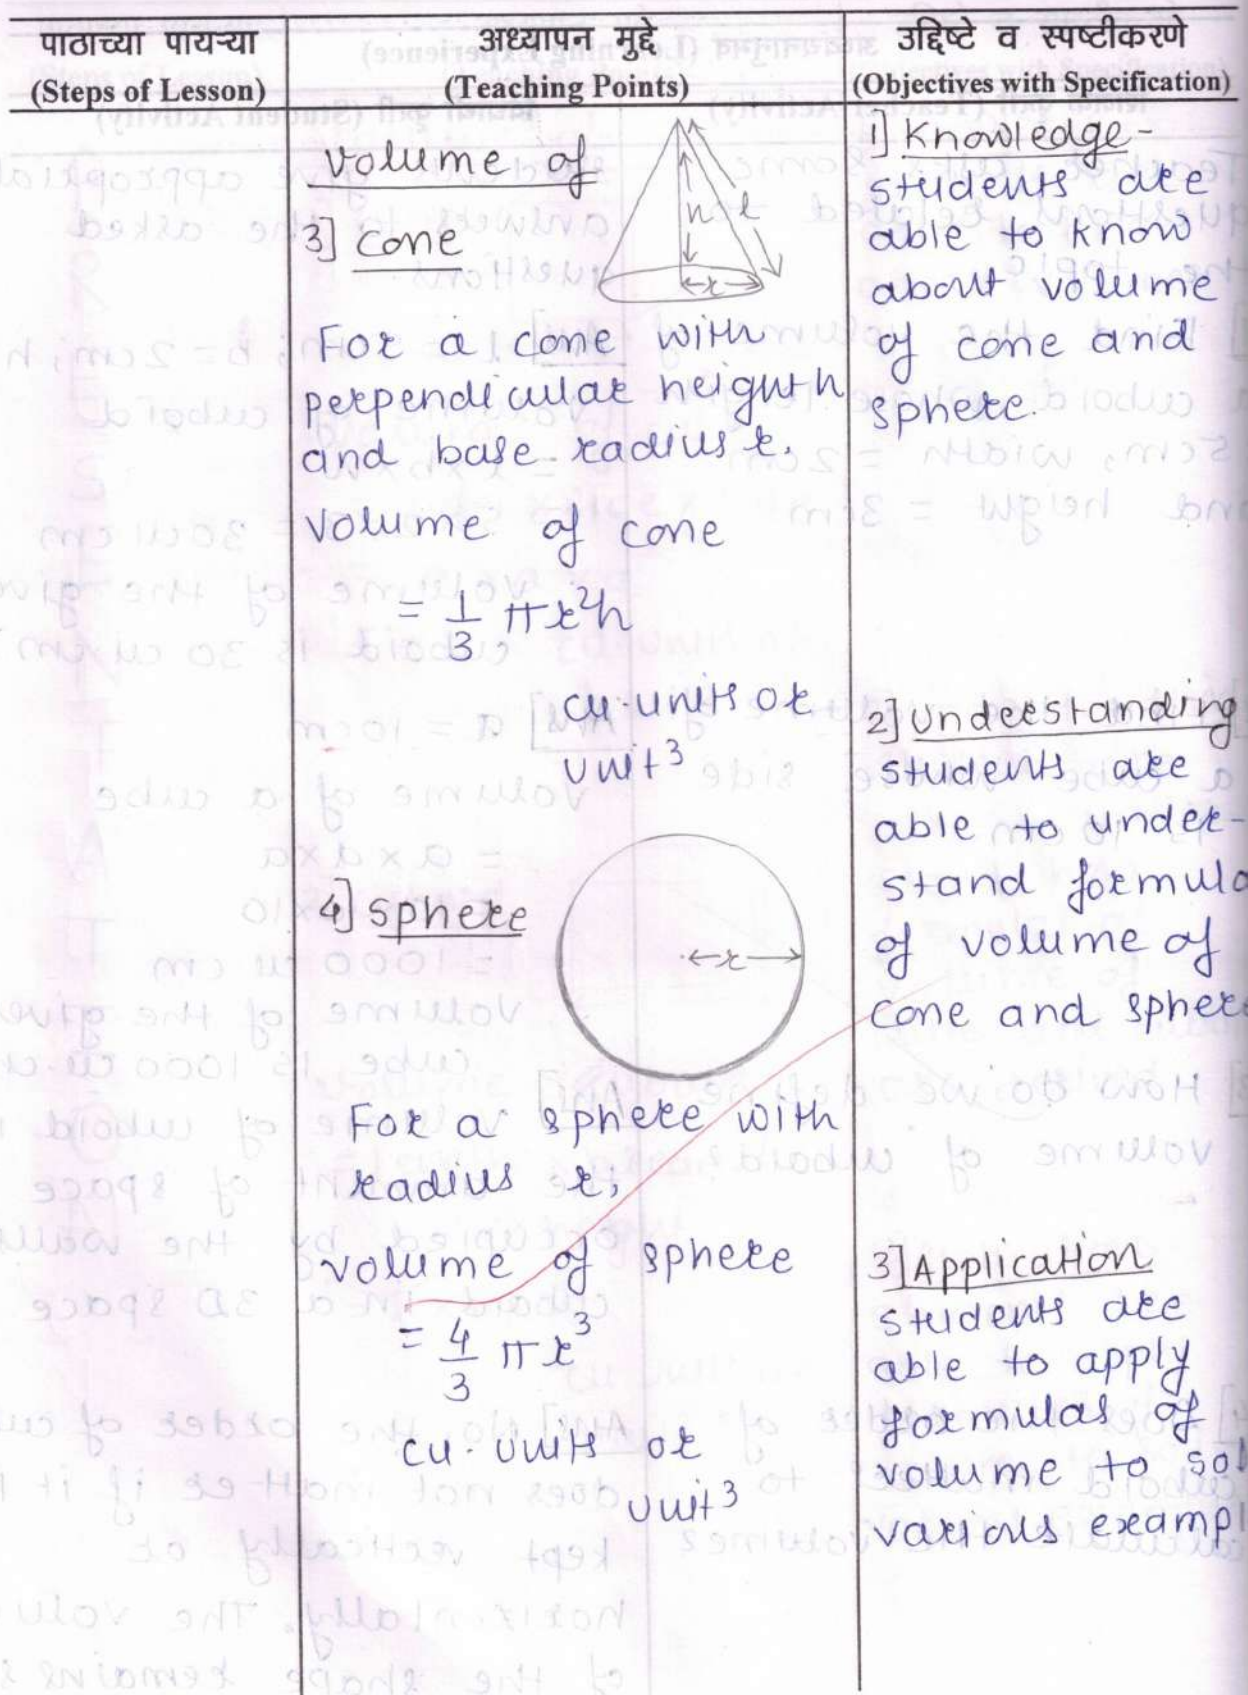 पाठाच्या पायऱ्या
(Steps of Lesson)
अध्यापन मुद्दे
(Teaching Points)
उद्दिष्टे व स्पष्टीकरणे
(Objectives with Specification)
volume of
3] cone
h l
r
For a cone with
perpendicular height h
and base radius r.
volume of cone
= 1/3 πr²h
cu. units or
unit³
4] sphere
r
For a sphere with
radius r,
volume of sphere
= 4/3 πr³
cu. units or
unit³
1] Knowledge -
students are
able to know
about volume
of cone and
sphere.
2] Understanding
students are
able to under-
stand formula
of volume of
cone and sphere
3] Application
students are
able to apply
formulas of
volume to
various